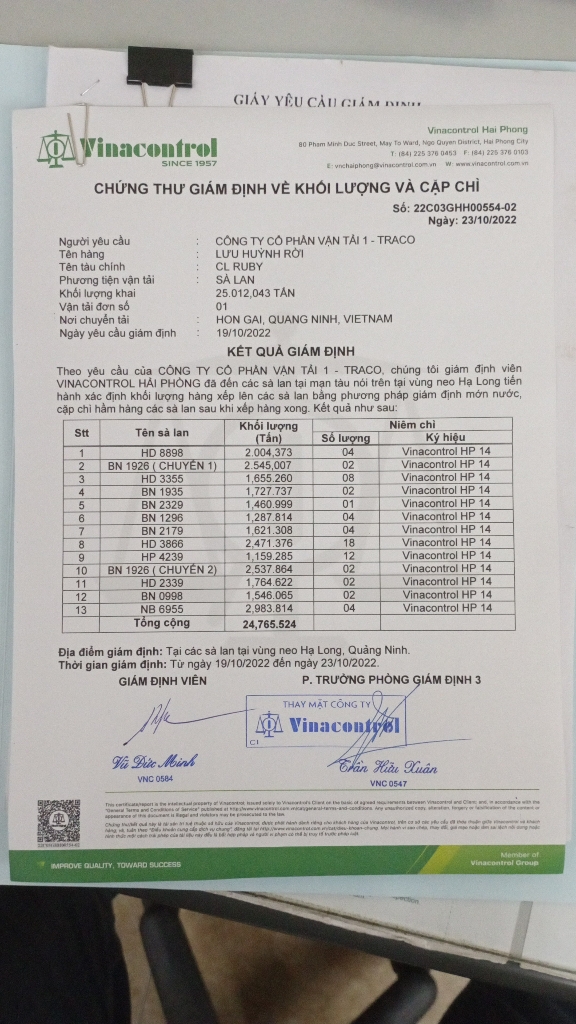 GIẤY YÊU CẦU GIÁM ĐỊNH
Vinacontrol
SINCE 1957
Vinacontrol Hai Phong
80 Pham Minh Duc Street, May To Ward, Ngo Quyen District, Hai Phong City
T: (84) 225 376 0453 F: (84) 225 376 0103
E: vnchaiphong@vinacontrol.com.vn W: www.vinacontrol.com.vn
CHỨNG THƯ GIÁM ĐỊNH VỀ KHỐI LƯỢNG VÀ CẶP CHÌ
Số: 22C03GHH00554-02
Ngày: 23/10/2022
Người yêu cầu : CÔNG TY CỔ PHẦN VẬN TẢI 1 - TRACO
Tên hàng : LƯU HUỲNH RỜI
Tên tàu chính : CL RUBY
Phương tiện vận tải : SÀ LAN
Khối lượng khai : 25.012,043 TẤN
Vận tải đơn số : 01
Nơi chuyển tải : HON GAI, QUANG NINH, VIETNAM
Ngày yêu cầu giám định : 19/10/2022
KẾT QUẢ GIÁM ĐỊNH
Theo yêu cầu của CÔNG TY CỔ PHẦN VẬN TẢI 1 - TRACO, chúng tôi giám định viên
VINACONTROL HẢI PHÒNG đã đến các sà lan tại mạn tàu nói trên tại vùng neo Hạ Long tiến
hành xác định khối lượng hàng xếp lên các sà lan bằng phương pháp giám định mớn nước,
cặp chì hầm hàng các sà lan sau khi xếp hàng xong. Kết quả như sau:
Stt Tên sà lan Khối lượng (Tấn) Niêm chì
Số lượng Ký hiệu
1 HD 8898 2.004,373 04 Vinacontrol HP 14
2 BN 1926 ( CHUYẾN 1) 2.545,007 02 Vinacontrol HP 14
3 HD 3355 1,655.260 08 Vinacontrol HP 14
4 BN 1935 1,727.737 02 Vinacontrol HP 14
5 BN 2329 1,460.999 01 Vinacontrol HP 14
6 BN 1296 1,287.814 04 Vinacontrol HP 14
7 BN 2179 1,621.308 04 Vinacontrol HP 14
8 HD 3866 2,471.376 18 Vinacontrol HP 14
9 HP 4239 1,159.285 12 Vinacontrol HP 14
10 BN 1926 ( CHUYẾN 2) 2,537.864 02 Vinacontrol HP 14
11 HD 2339 1,764.622 02 Vinacontrol HP 14
12 BN 0998 1,546.065 02 Vinacontrol HP 14
13 NB 6955 2,983.814 04 Vinacontrol HP 14
Tổng cộng 24,765.524
Địa điểm giám định: Tại các sà lan tại vùng neo Hạ Long, Quảng Ninh.
Thời gian giám định: Từ ngày 19/10/2022 đến ngày 23/10/2022.
GIÁM ĐỊNH VIÊN P. TRƯỞNG PHÒNG GIÁM ĐỊNH 3
THAY MẶT CÔNG TY
Vinacontrol
C1
Vũ Đức Minh Trần Hữu Xuân
VNC 0584 VNC 0547
This certificate/report is the intellectual property of Vinacontrol, issued solely to Vinacontrol's Client on the basis of agreed requirements between Vinacontrol and Client; and, in accordance with the
IMPROVE QUALITY, TOWARD SUCCESS
Member of
Vinacontrol Group